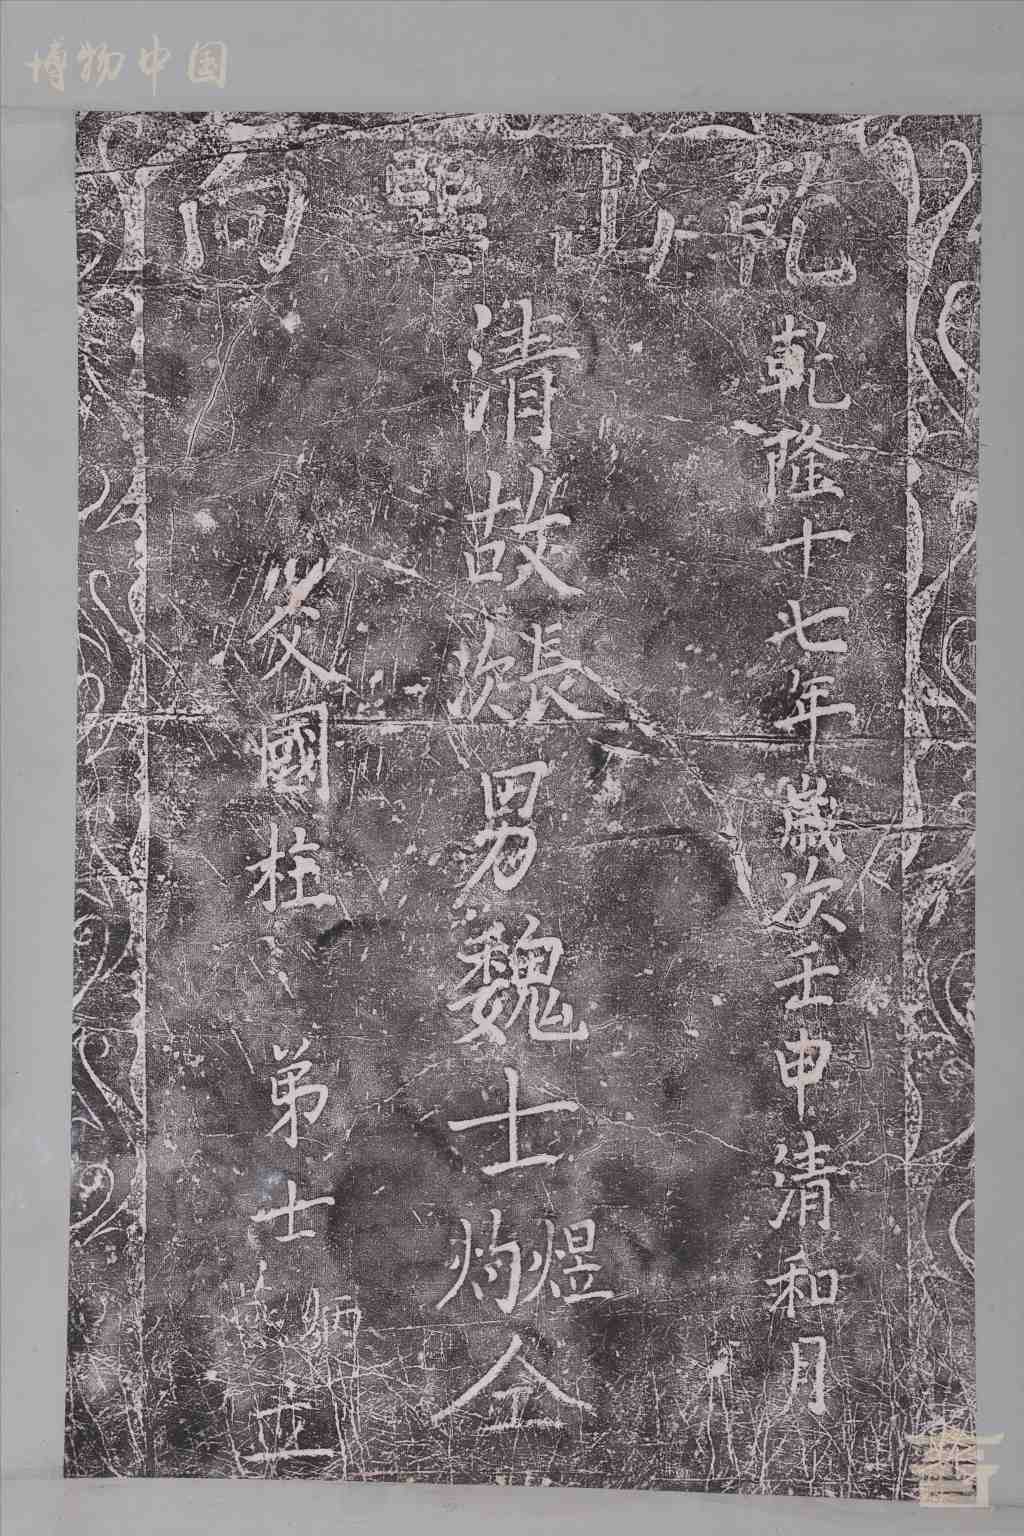 博物中国
乾山巽向
乾隆十七年歲次壬申清和月
清故長次男魏士煜灼仝
父國柱 弟士炳立